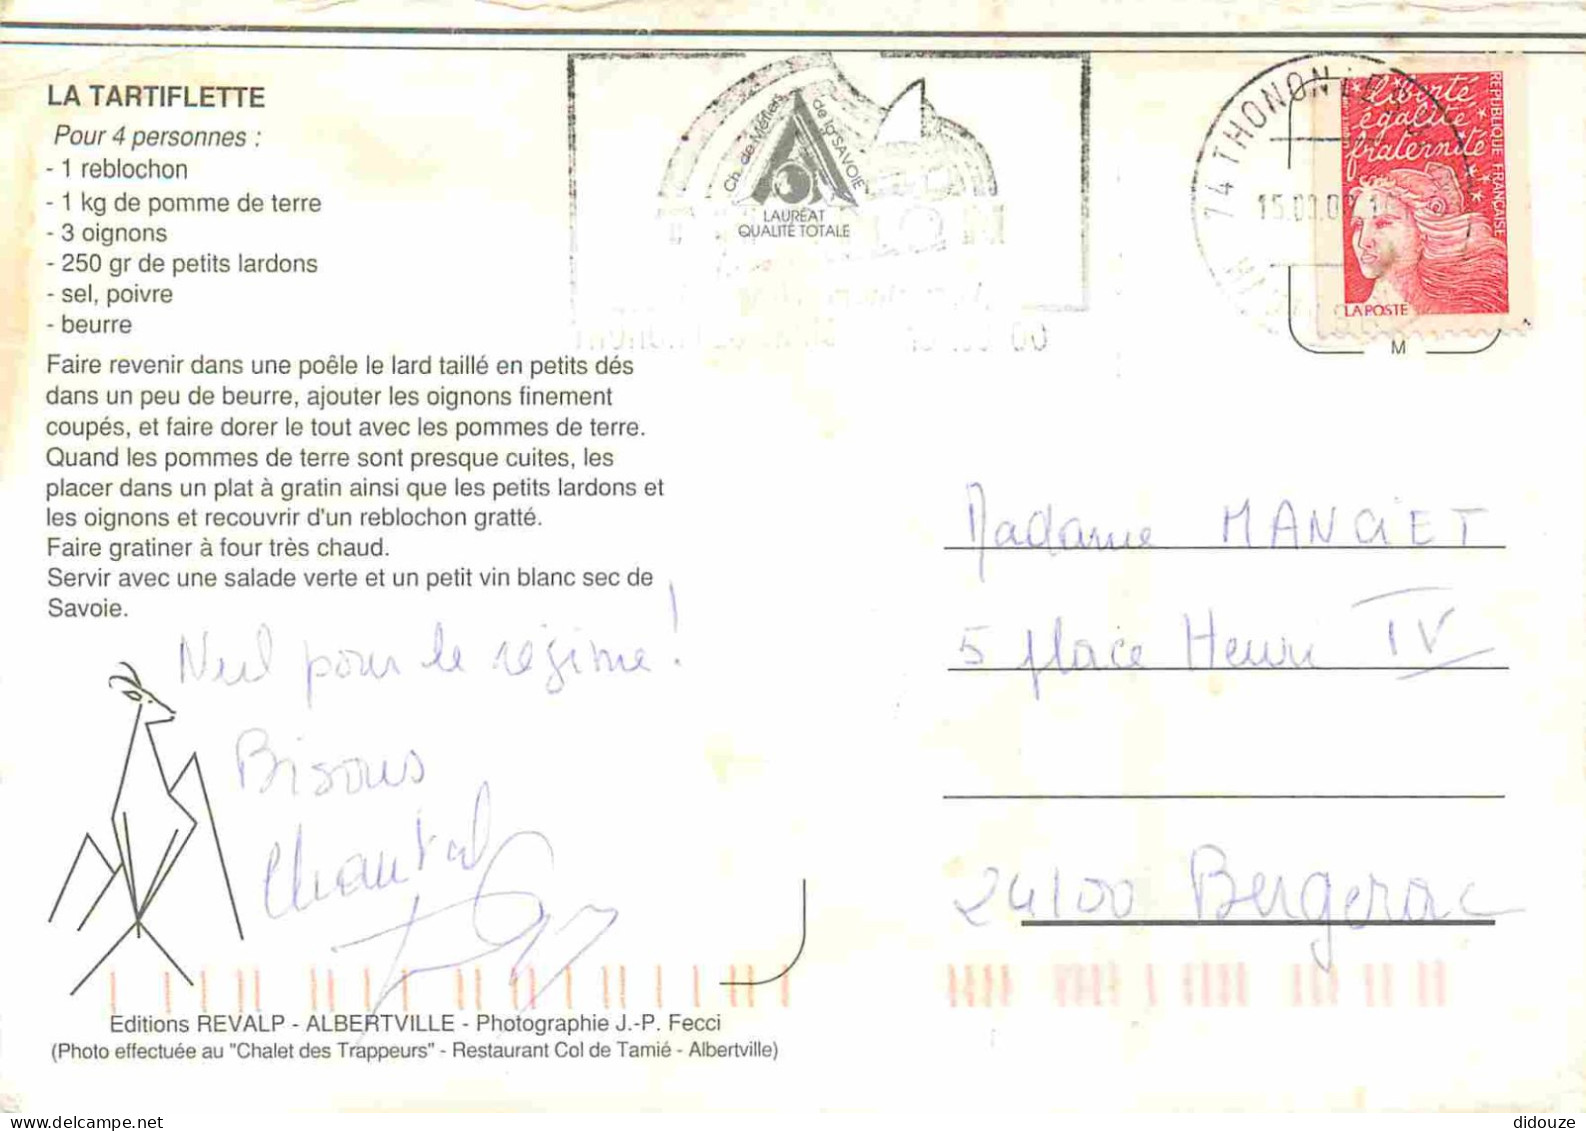 LA TARTIFLETTE
Pour 4 personnes :
- 1 reblochon
- 1 kg de pomme de terre
- 3 oignons
- 250 gr de petits lardons
- sel, poivre
- beurre
Faire revenir dans une poêle le lard taillé en petits dés
dans un peu de beurre, ajouter les oignons finement
coupés, et faire dorer le tout avec les pommes de terre.
Quand les pommes de terre sont presque cuites, les
placer dans un plat à gratin ainsi que les petits lardons et
les oignons et recouvrir d'un reblochon gratté.
Faire gratiner à four très chaud.
Servir avec une salade verte et un petit vin blanc sec de
Savoie.
Nul pour le régime !
Bisous
Chantal
Editions REVALP - ALBERTVILLE - Photographie J.-P. Fecci
(Photo effectuée au "Chalet des Trappeurs" - Restaurant Col de Tamié - Albertville)
Ch. de Métiers de la SAVOIE
LAURÉAT
QUALITÉ TOTALE
74 THONON LES
liberté
égalité
fraternité
REPUBLIQUE FRANÇAISE
LA POSTE
M
Madame MANCIET
5 place Henri IV
24100 Bergerac
www.delcampe.net
didouze